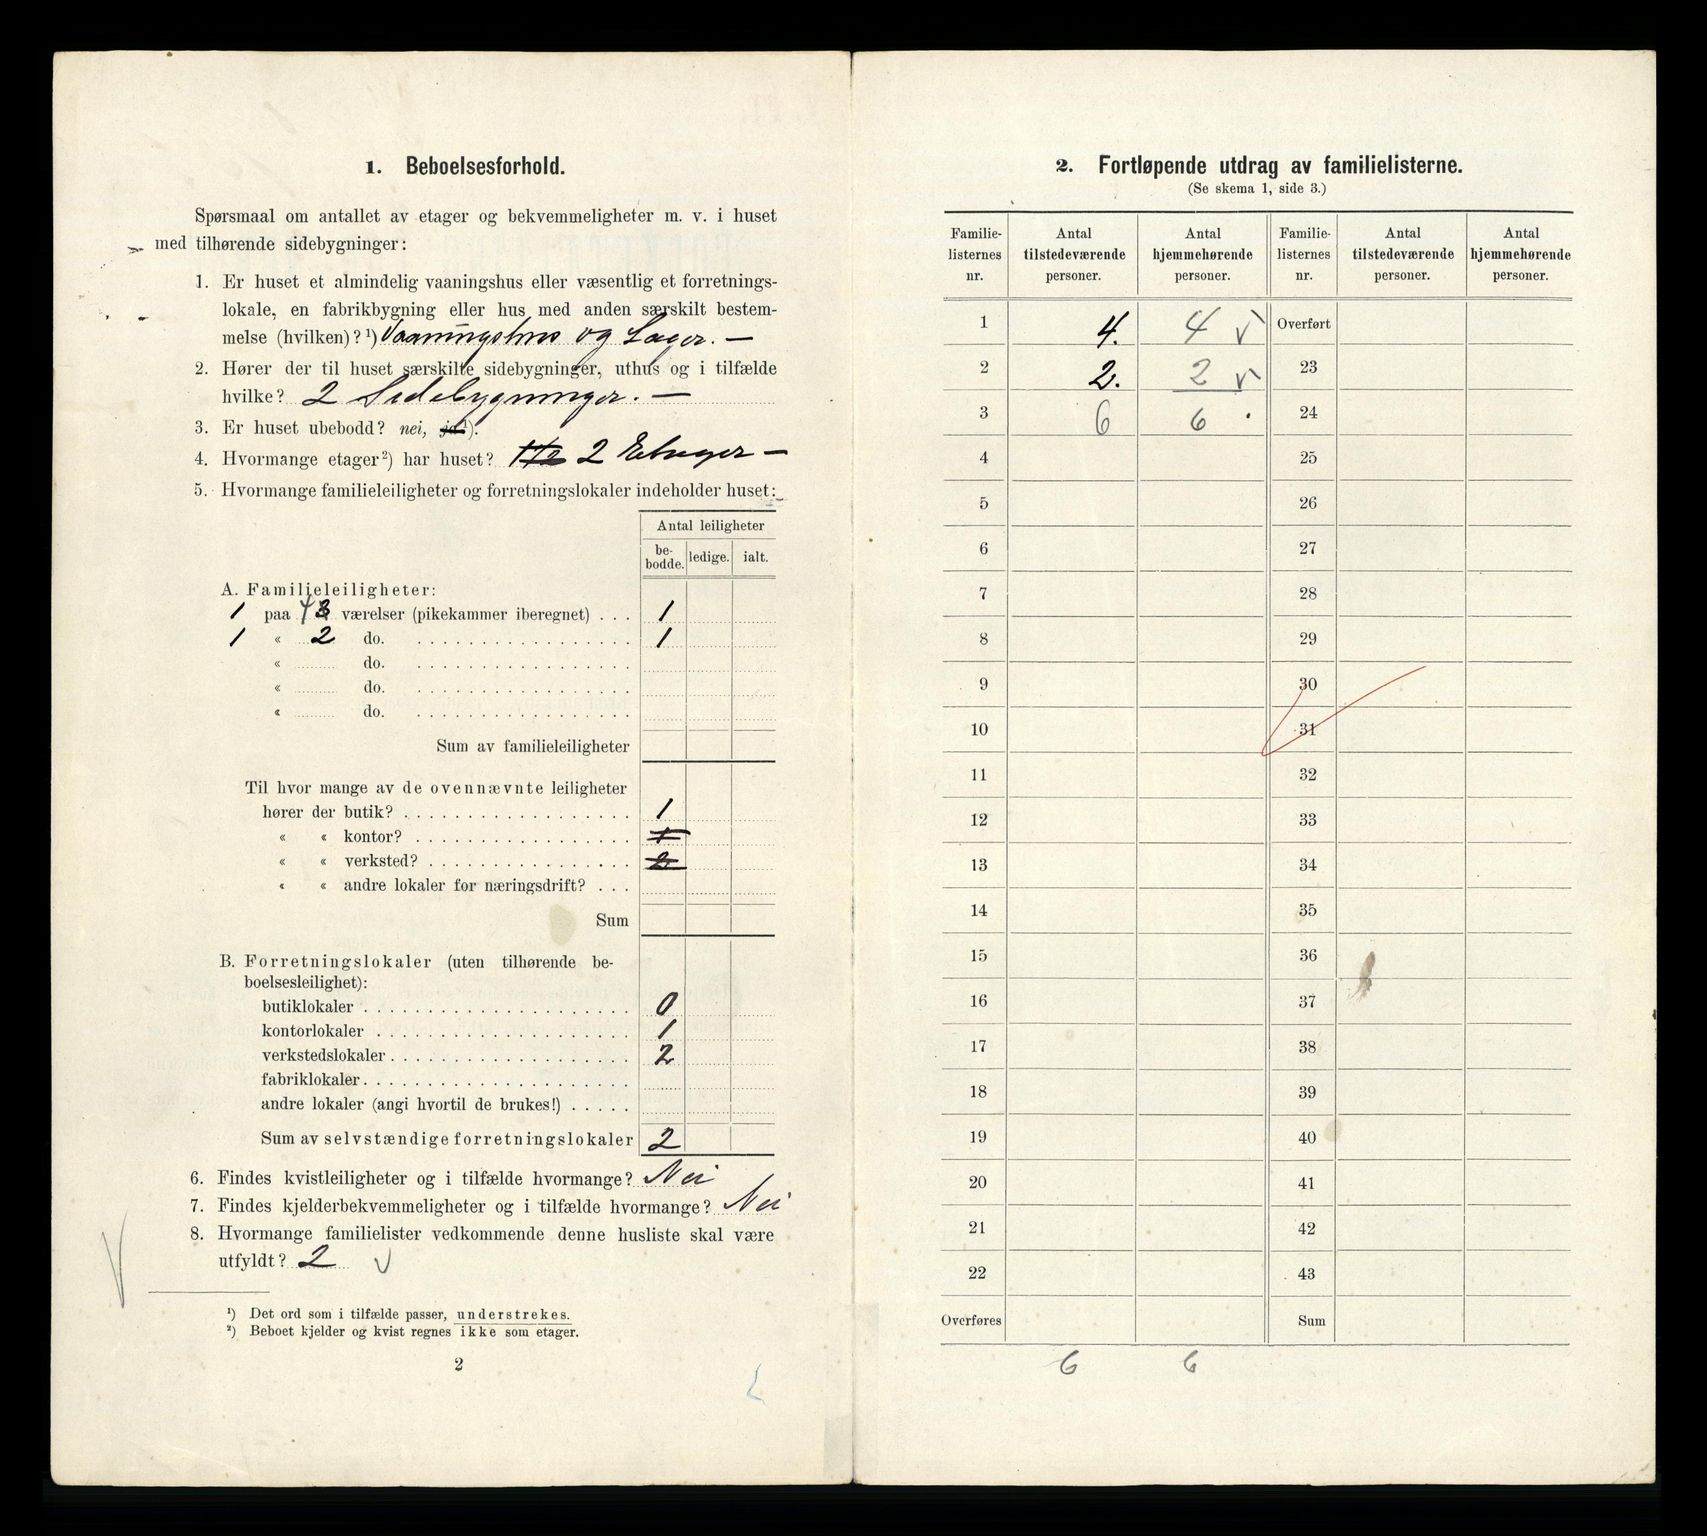 1. Beboelsesforhold.
Spørsmaal om antallet av etager og bekvemmeligheter m. v. i huset
med tilhørende sidebygninger:
1. Er huset et almindelig vaaningshus eller væsentlig et forretnings-
lokale, en fabrikbygning eller hus med anden særskilt bestem-
melse (hvilken)? ¹) Vaaningshus og Lager. —
2. Hører der til huset særskilte sidebygninger, uthus og i tilfælde
hvilke? 2 Sidebygninger. —
3. Er huset ubebodd? nei, ja ¹).
4. Hvormange etager ²) har huset? 1 1/2 2 Etager —
5. Hvormange familieleiligheter og forretningslokaler indeholder huset:
Antal leiligheter
be-bodde. ledige. ialt.
A. Familieleiligheter:
1 paa 4 3 værelser (pikekammer iberegnet) . . . 1
1 « 2 do. . . . . . . . . . . . . . . . . . 1
« do. . . . . . . . . . . . . . . . . .
« do. . . . . . . . . . . . . . . . . .
« do. . . . . . . . . . . . . . . . . .
Sum av familieleiligheter
Til hvor mange av de ovennævnte leiligheter
hører der butik? . . . . . . . . . . . . . . . . . . 1
« « kontor? . . . . . . . . . . . . . . . . . 1
« « verksted? . . . . . . . . . . . . . . . . 2
« « andre lokaler for næringsdrift? . . .
Sum
B. Forretningslokaler (uten tilhørende be-
boelsesleilighet):
butiklokaler . . . . . . . . . . . . . . . . . . . . . 0
kontorlokaler . . . . . . . . . . . . . . . . . . . . 1
verkstedslokaler . . . . . . . . . . . . . . . . . . . 2
fabriklokaler . . . . . . . . . . . . . . . . . . . . .
andre lokaler (angi hvortil de brukes!) . . . . .
Sum av selvstændige forretningslokaler 2
6. Findes kvistleiligheter og i tilfælde hvormange? Nei
7. Findes kjelderbekvemmeligheter og i tilfælde hvormange? Nei
8. Hvormange familielister vedkommende denne husliste skal være
utfyldt? 2
¹) Det ord som i tilfælde passer, understrekes.
²) Beboet kjelder og kvist regnes ikke som etager.
2
2. Fortløpende utdrag av familielisterne.
(Se skema 1, side 3.)
Familie-listernes nr. Antal tilstedeværende personer. Antal hjemmehørende personer. Familie-listernes nr. Antal tilstedeværende personer. Antal hjemmehørende personer.
1 4. 4 Overført
2 2. 2 23
3 6 6 24
4 25
5 26
6 27
7 28
8 29
9 30
10 31
11 32
12 33
13 34
14 35
15 36
16 37
17 38
18 39
19 40
20 41
21 42
22 43
Overføres Sum
6 6